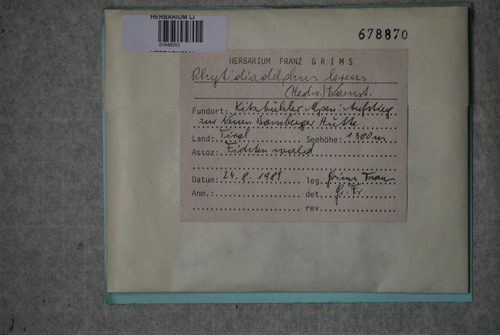 HERBARIUM LI
678870
HERBARIUM FRANZ GRIMS
Rhytidiadelphus loreus
(Hedw.) Warnst.
Fundort: Kitzbühler Alpen: Aufstieg
zur Neuen Bamberger Hütte
Land: Tirol Seehöhe: 1300m
Assoz: Fichtenwald
Datum: 24.8.1988 leg. Grims Franz
Anm.: det. Gr. Fr.
rev.